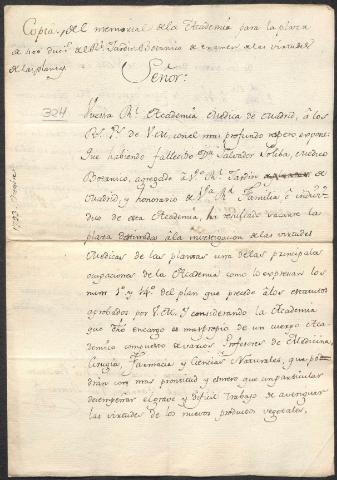 Copia, del memorial de la Academia para la plaza
de 400 duc.s del R.l Jardin Botanico de examen de las virtudes
de las plantas
Señor:
324
Vuestra R.l Academia Medica de Madrid, à los
R.s P.s de V.M. con el mas profundo respeto expone:
Que habiendo fallecido D.n Salvador Soliba, Medico
Botanico, agregado à V.ro R.l Jardin de
Madrid, y honorario de V.ra R.l Familia, è indivi-
duo de esta Academia, ha resultado vacante la
plaza destinada à la investigacion de las virtudes
Medicas de las plantas una de las principales
ocupaciones de la Academia como lo expresan los
num.s 1.º y 14.º del plan que precede à los estatutos
aprobados por V.M. Y considerando la Academia
que este encargo es mas propio de un cuerpo Aca-
demico compuesto de varios Profesores de Medicina,
Cirugia, Farmacia y Ciencias Naturales, que po-
drán con mas prontitud y esmero que un particular
desempeñar el grave y dificil trabajo de averiguar
las virtudes de los nuevos productos vegetales,